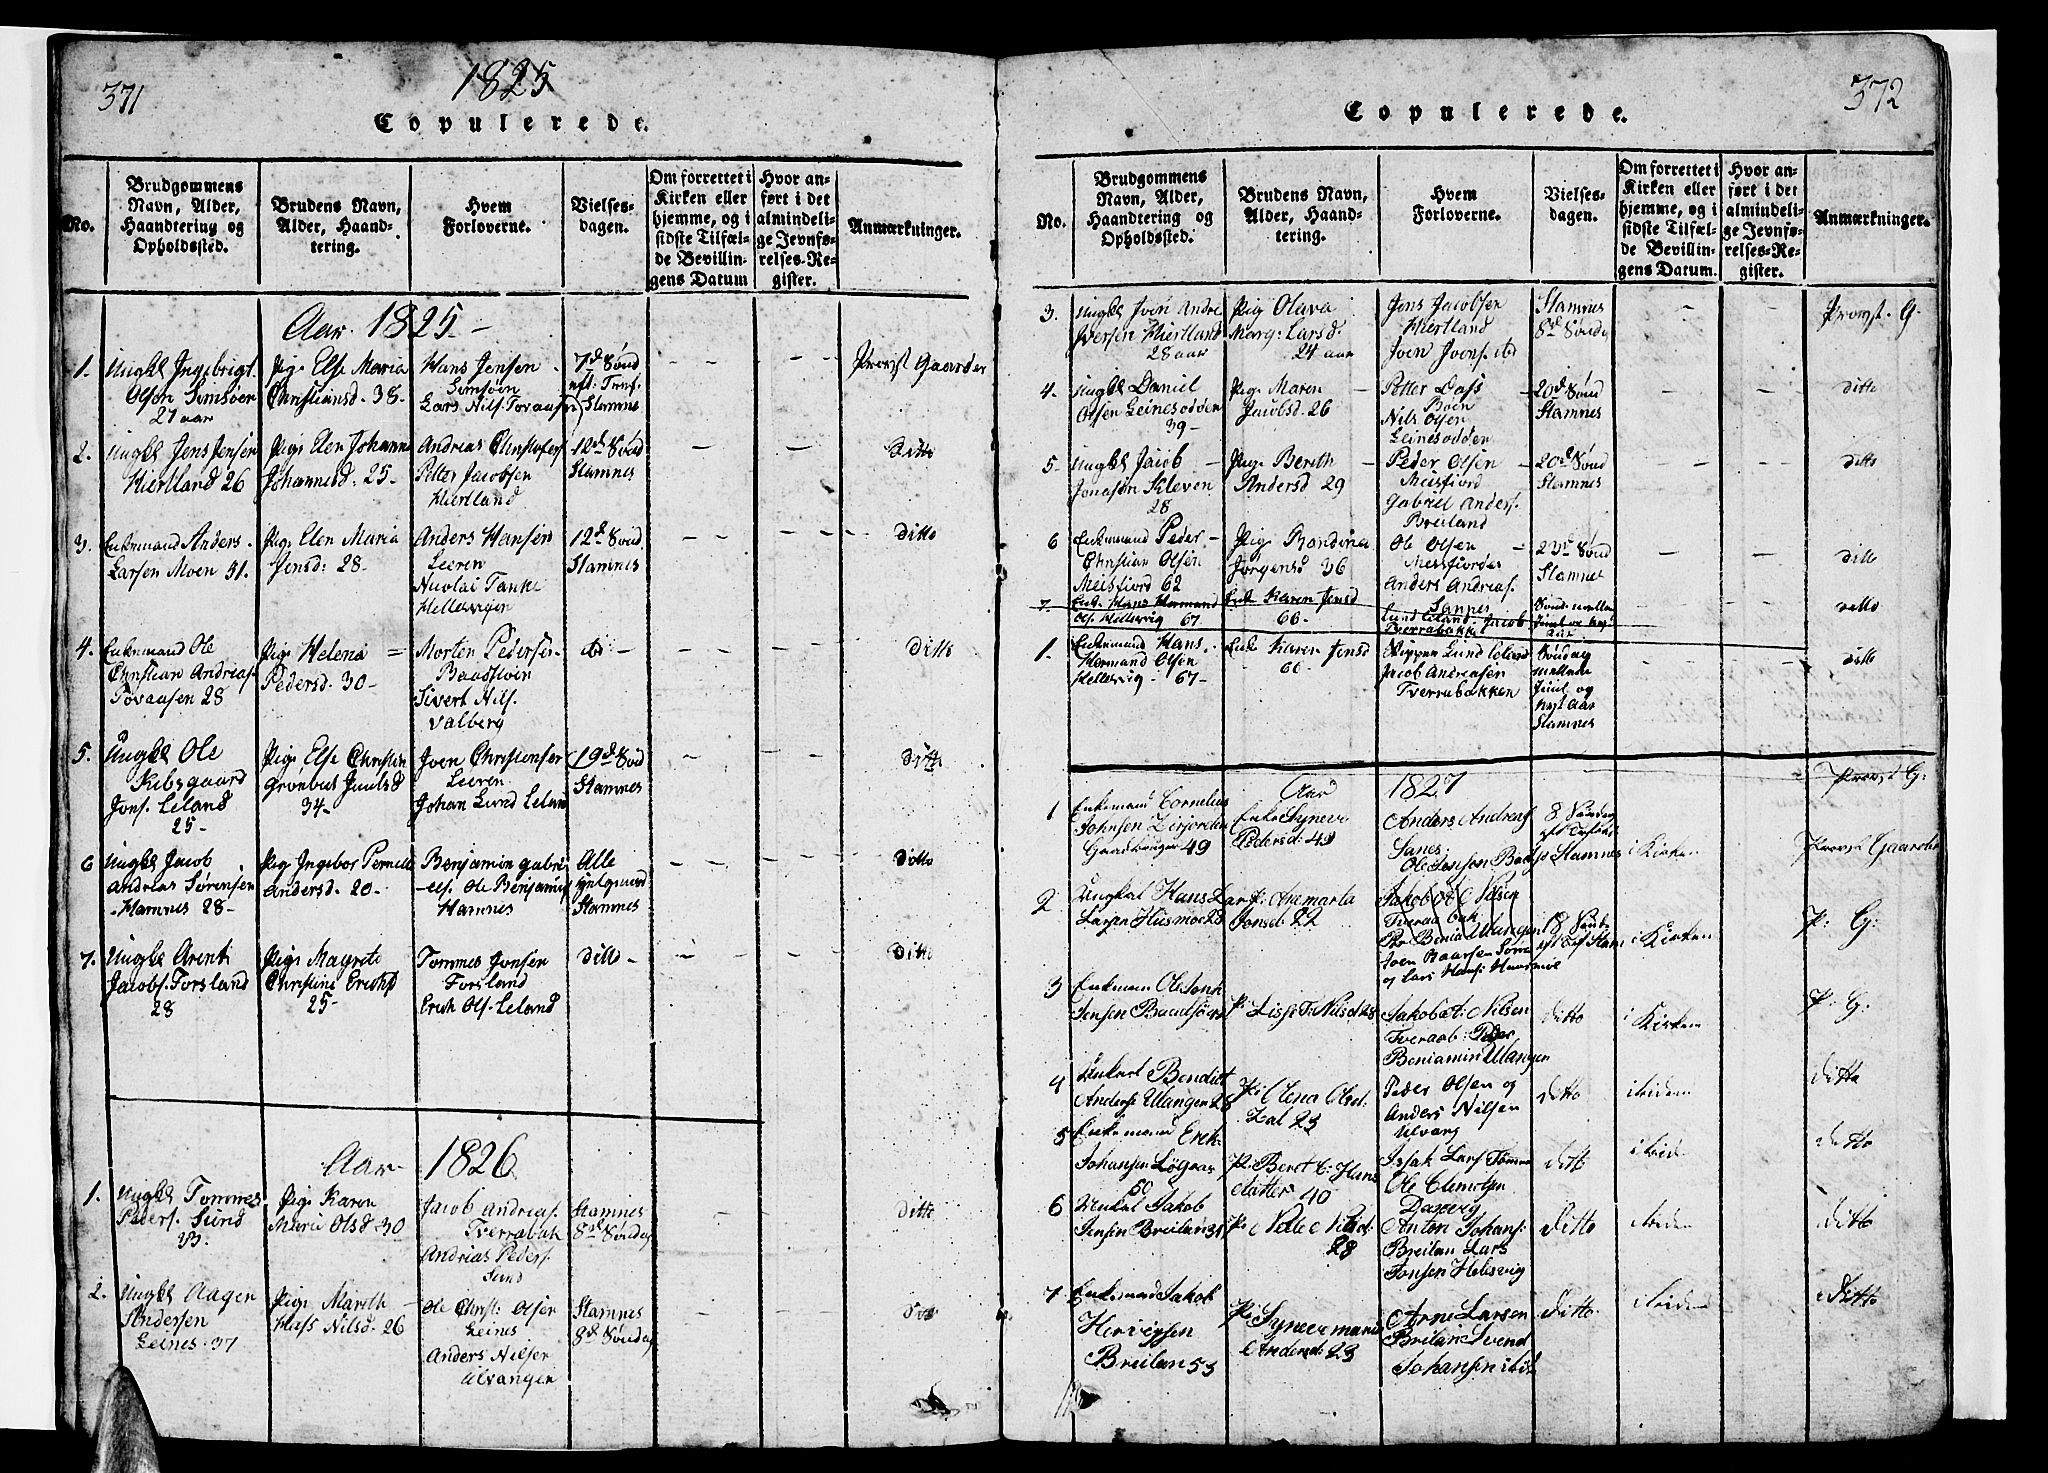 371
1825
Copulerede.
No.
Brudgommens
Navn, Alder,
Haandtering og
Opholdssted.
Brudens Navn,
Alder, Haand-
tering.
Hvem
Forloverne.
Vielses-
dagen.
Om forrettet i
Kirken eller
hjemme, og i
sidste Tilfæl-
de Bevillin-
gens Datum
Hvor an-
ført i det
almindeli-
ge Jevnfø-
relses-Re-
gister.
Anmærkninger.
Aar 1825 -
1.
Ungkl Ingebrigt
Olsen Semsøen
27 aar
Pige Else Maria
Christiansd. 38 -
Hans Jensen -
Semsøen
Lars Nils. Tovaasen
7d Sønd
Stamnes
- - -
Provst Gaarder
2.
Ungkl Jens Jensen
Kiertland 26
Pige Elen Johanna
Johannesd. 25 -
Andreas Christofers
Petter Jacobsen
Kiertland
12d Sønd
Stamnes
Ditto
3.
Enkemand Anders
Larsen Moen 51.
Pige Elen Maria
Jensd: 28 -
Anders Hansen
Leeren
Nicolai Tanke
Hellervigen
12d Sønd
Stamnes
ditto
4.
Enkemand Ole
Christian Andreas.
Tovaasen 28
Pige Helena =
Pedersd. 30 -
Morten Pedersen
Baadstøin
Sivert Nils.
Valberg
Ditto
5.
Ungkl Ole
Kibsgaard
Jons. Leland
25 -
Pige Else Christin
Grønbek Juulsd
34 -
Joen Christensen
Leeren
Johan Lund Leland
19d Sønd
Stamnes
ditto
6
Ungkl Jacob
Andreas Sørensen
Hamnes 28 -
Pige Ingebor Pernille
Andersd. 20 -
Benjamin Gabri-
-els. Ole Benjamins
Hamnes
Alle
Helgensd
Stamnes
ditto
7.
Ungkl Arent
Jacobs. Forsland
28
Pige Magrete
Christine Ericksd
25 -
Tommes Jonsen
Forsland
Erich Ols. Leland
ditto -
Ditto
Aar 1826
1.
Ungkl Tommes
Peders. Sund
Pige Karen
Marie Olsd. 30
Jacob Andreas.
Tverrabak
Andreas Peders.
Sund
Stamnes
8d Søndag
ditto
2.
Ungkl Aagen
Andersen
Leines. 37
Pige Mareth
Hass Nilsd. 26
Ole Christ: Olsen
Leines
Anders Nilsen
Ulvangen
Stamnes
8d Søndag
372
Copulerede.
No.
Brudgommens
Navn, Alder,
Haandtering og
Opholdssted.
Brudens Navn,
Alder, Haand-
tering.
Hvem
Forloverne.
Vielses-
dagen.
Om forrettet i
Kirken eller
hjemme, og i
sidste Tilfæl-
de Bevillin-
gens Datum.
Hvor an-
ført i det
almindeli-
ge Jevnfø-
relses-Re-
gister.
Anmærkninger.
3.
Ungkl Joen Andre
Iversen Kiertland
28 aar
Pige Olava
Marg: Larsd.
24 aar
Jens Jacobsen
Kiertland
Joen Joens. ibd
Stamnes
8d Søndag
Provst. G.
4.
Ungkl Daniel
Olsen Leinesodden
39 -
Pige Maren
Jacobsd. 26
Petter Dass
Bøen
Nils Olsen
Leinesodden
20d Sønd
Stamnes
ditto
5.
Ungkl Jacob
Jonasen Kleven
28
Pige Bereth
Andersd 29
Peder Olsen
Meisfiord
Gabriel Anders.
Breiland
20d Sønd
Stamnes
ditto
6
Enkemand Peder
Christian Olsen
Meisfiord 62
Pige Randina
Jørgensd 36
Ole Olsen
Meisfiorden
Anders Andreas.
Sannes
23d Sønd
Stamnes
ditto
7.
Enk. Hans Hormand
Ols. Hellervig 67.
Enke Karen Jensd
66 -
Lund Leland Jacob
Tverrabakke
ditto
1.
Enkemand Hans
Hormand Olsen
Hellervig - 67 -
Enke Karen Jensd
66 -
Skipper Lund Leland
Jacob Andreasen
Tverrabakken
Søndag
mellem
Juul og
Nyt Aar
Stamnes
ditto
Provst G:
Aar 1827
1
Enkemand Cornelius
Johnsen
49
Enke Synneve
Pedersd: 49
Anders Andreas
Sanes
8 Søndag
Stamnes
i Kirken
Provst Gaarder
2
Ungkal Hans
Larsen Husmoe 28
Anemarta
Jonsd. 22
Jakob A Nilsen
Tveraabak
Joen Baarsen
og Lars Hans:
18 Sønd
i Kirken
P: G:
3
Enkeman Ole
Jensen
Pi: Nilsd 28
Jakob A: Nilsen
Tveraab: Peder
Beniamin Ulangen
ditto
i Kirken
P: G:
4
Unkarl Bendict
Anderse Ulangen 28
Pi: Olena Olsd:
Zal 23
Peder Olsen og
Anders Nilsen
Ulvang
ditto
ditto
5
Enkemand Erik
Johansen
60
Pi: Beret C: Hans
datter 40
Isak Lars
Ole Clemetsen
ditto
ditto
6
Unkal Jakob
Jensen Breilan 31
Pi: Nilsd:
28
Anton Johans:
Breilan Lars
Jonsen Helsvig
ditto
ditto
7
Enkemand Jakob
Hervigsen
Breilan 53
Pi: Synevemaria
Andersd: 23
Arne Larsen
Breilan Svend
Johansen ibid
ditto
ditto